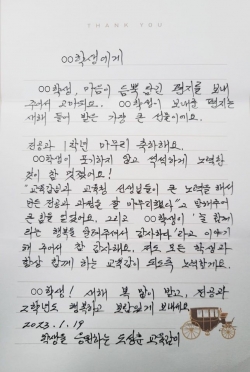 THANK YOU
OO학생에게
OO학생, 마음이 듬뿍 담긴 편지를 보내
주어서 고마워요. OO학생이 보내준 편지는
새해 들어 받은 가장 큰 선물이에요.
진급과 1학년 마무리 축하해요.
OO학생이 포기하지 않고 성실하게 노력한
것이 참 멋졌어요!
"교육감님과 교육청 선생님들이 큰 노력을 해서
만든 진급과 과정을 잘 마무리했다"고 말해주어
큰 힘을 얻었어요. 그리고 OO학생이 '늘 함께
라는 행복을 알려주셔서 감사하다'라고 이야기
해 주어서 참 감사해요. 저도 모든 학생과
항상 함께 하는 교육감이 되도록 노력할게요.
OO학생! 새해 복 많이 받고, 진급과
2학년도 행복하고 보람있게 보내세요
2023. 1. 19
학생을 응원하는 도성훈 교육감이